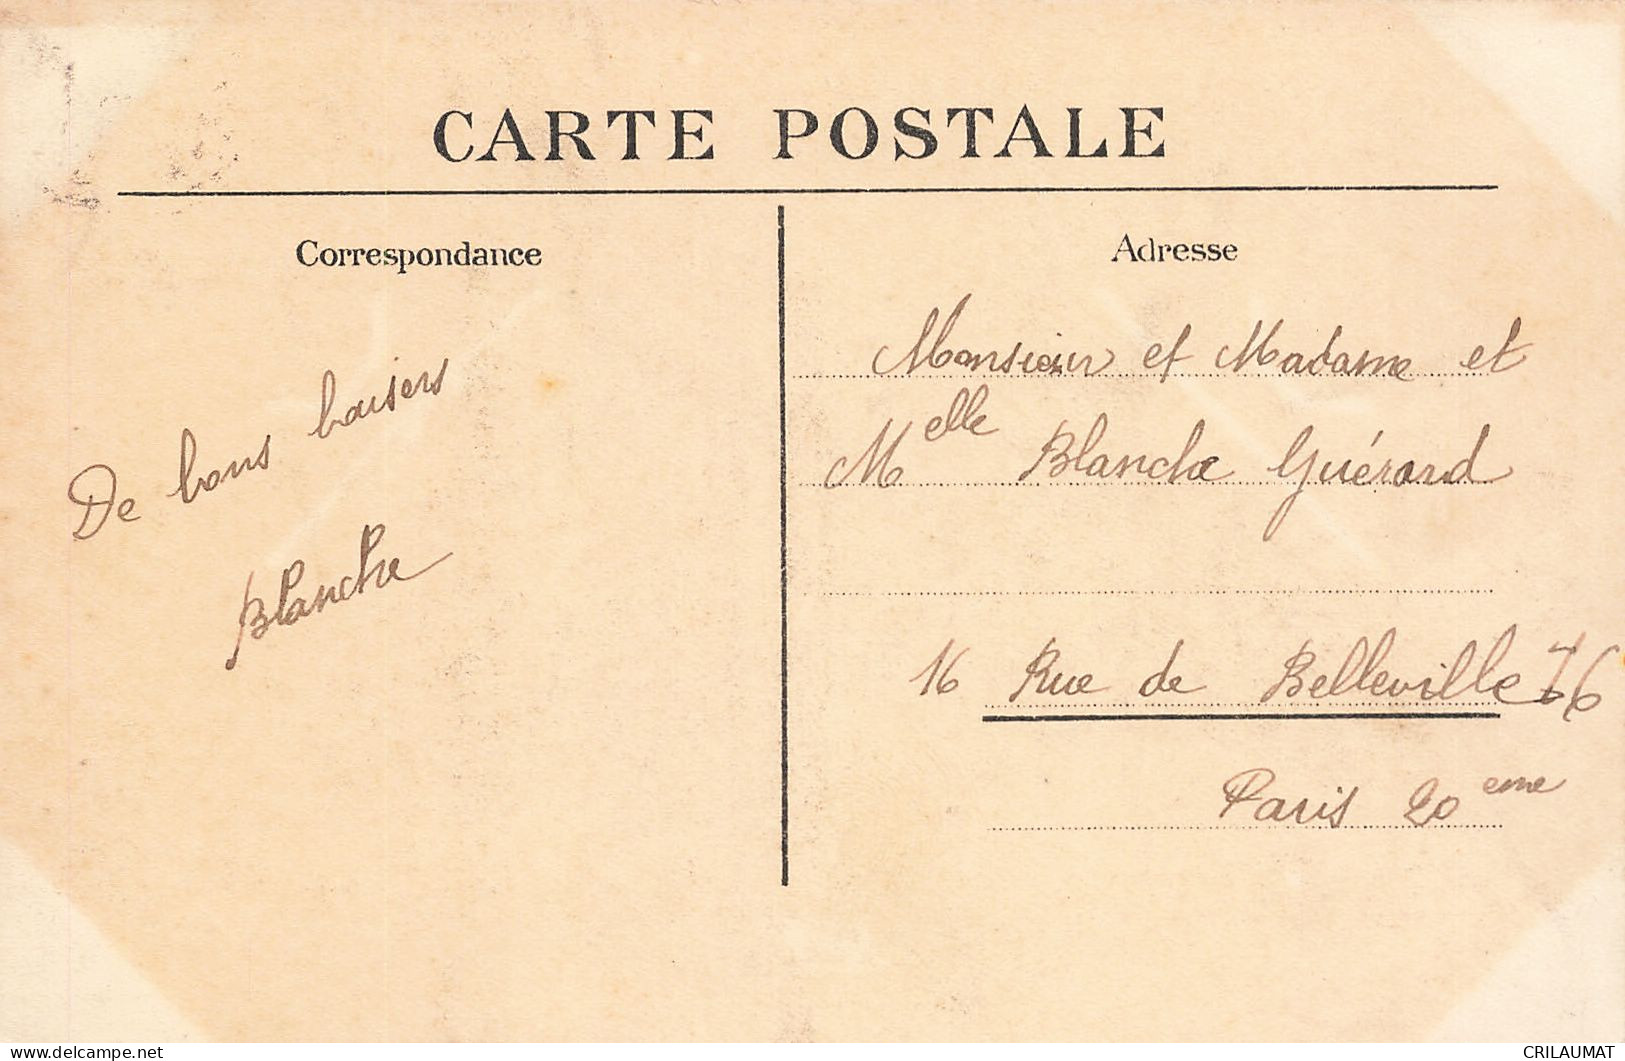 CARTE POSTALE
Correspondance
De bons baisers
Blanche
Adresse
Monsieur et Madame et
Melle Blanche Guérard
16 Rue de Belleville 76
Paris 20eme
CRILAUMAT